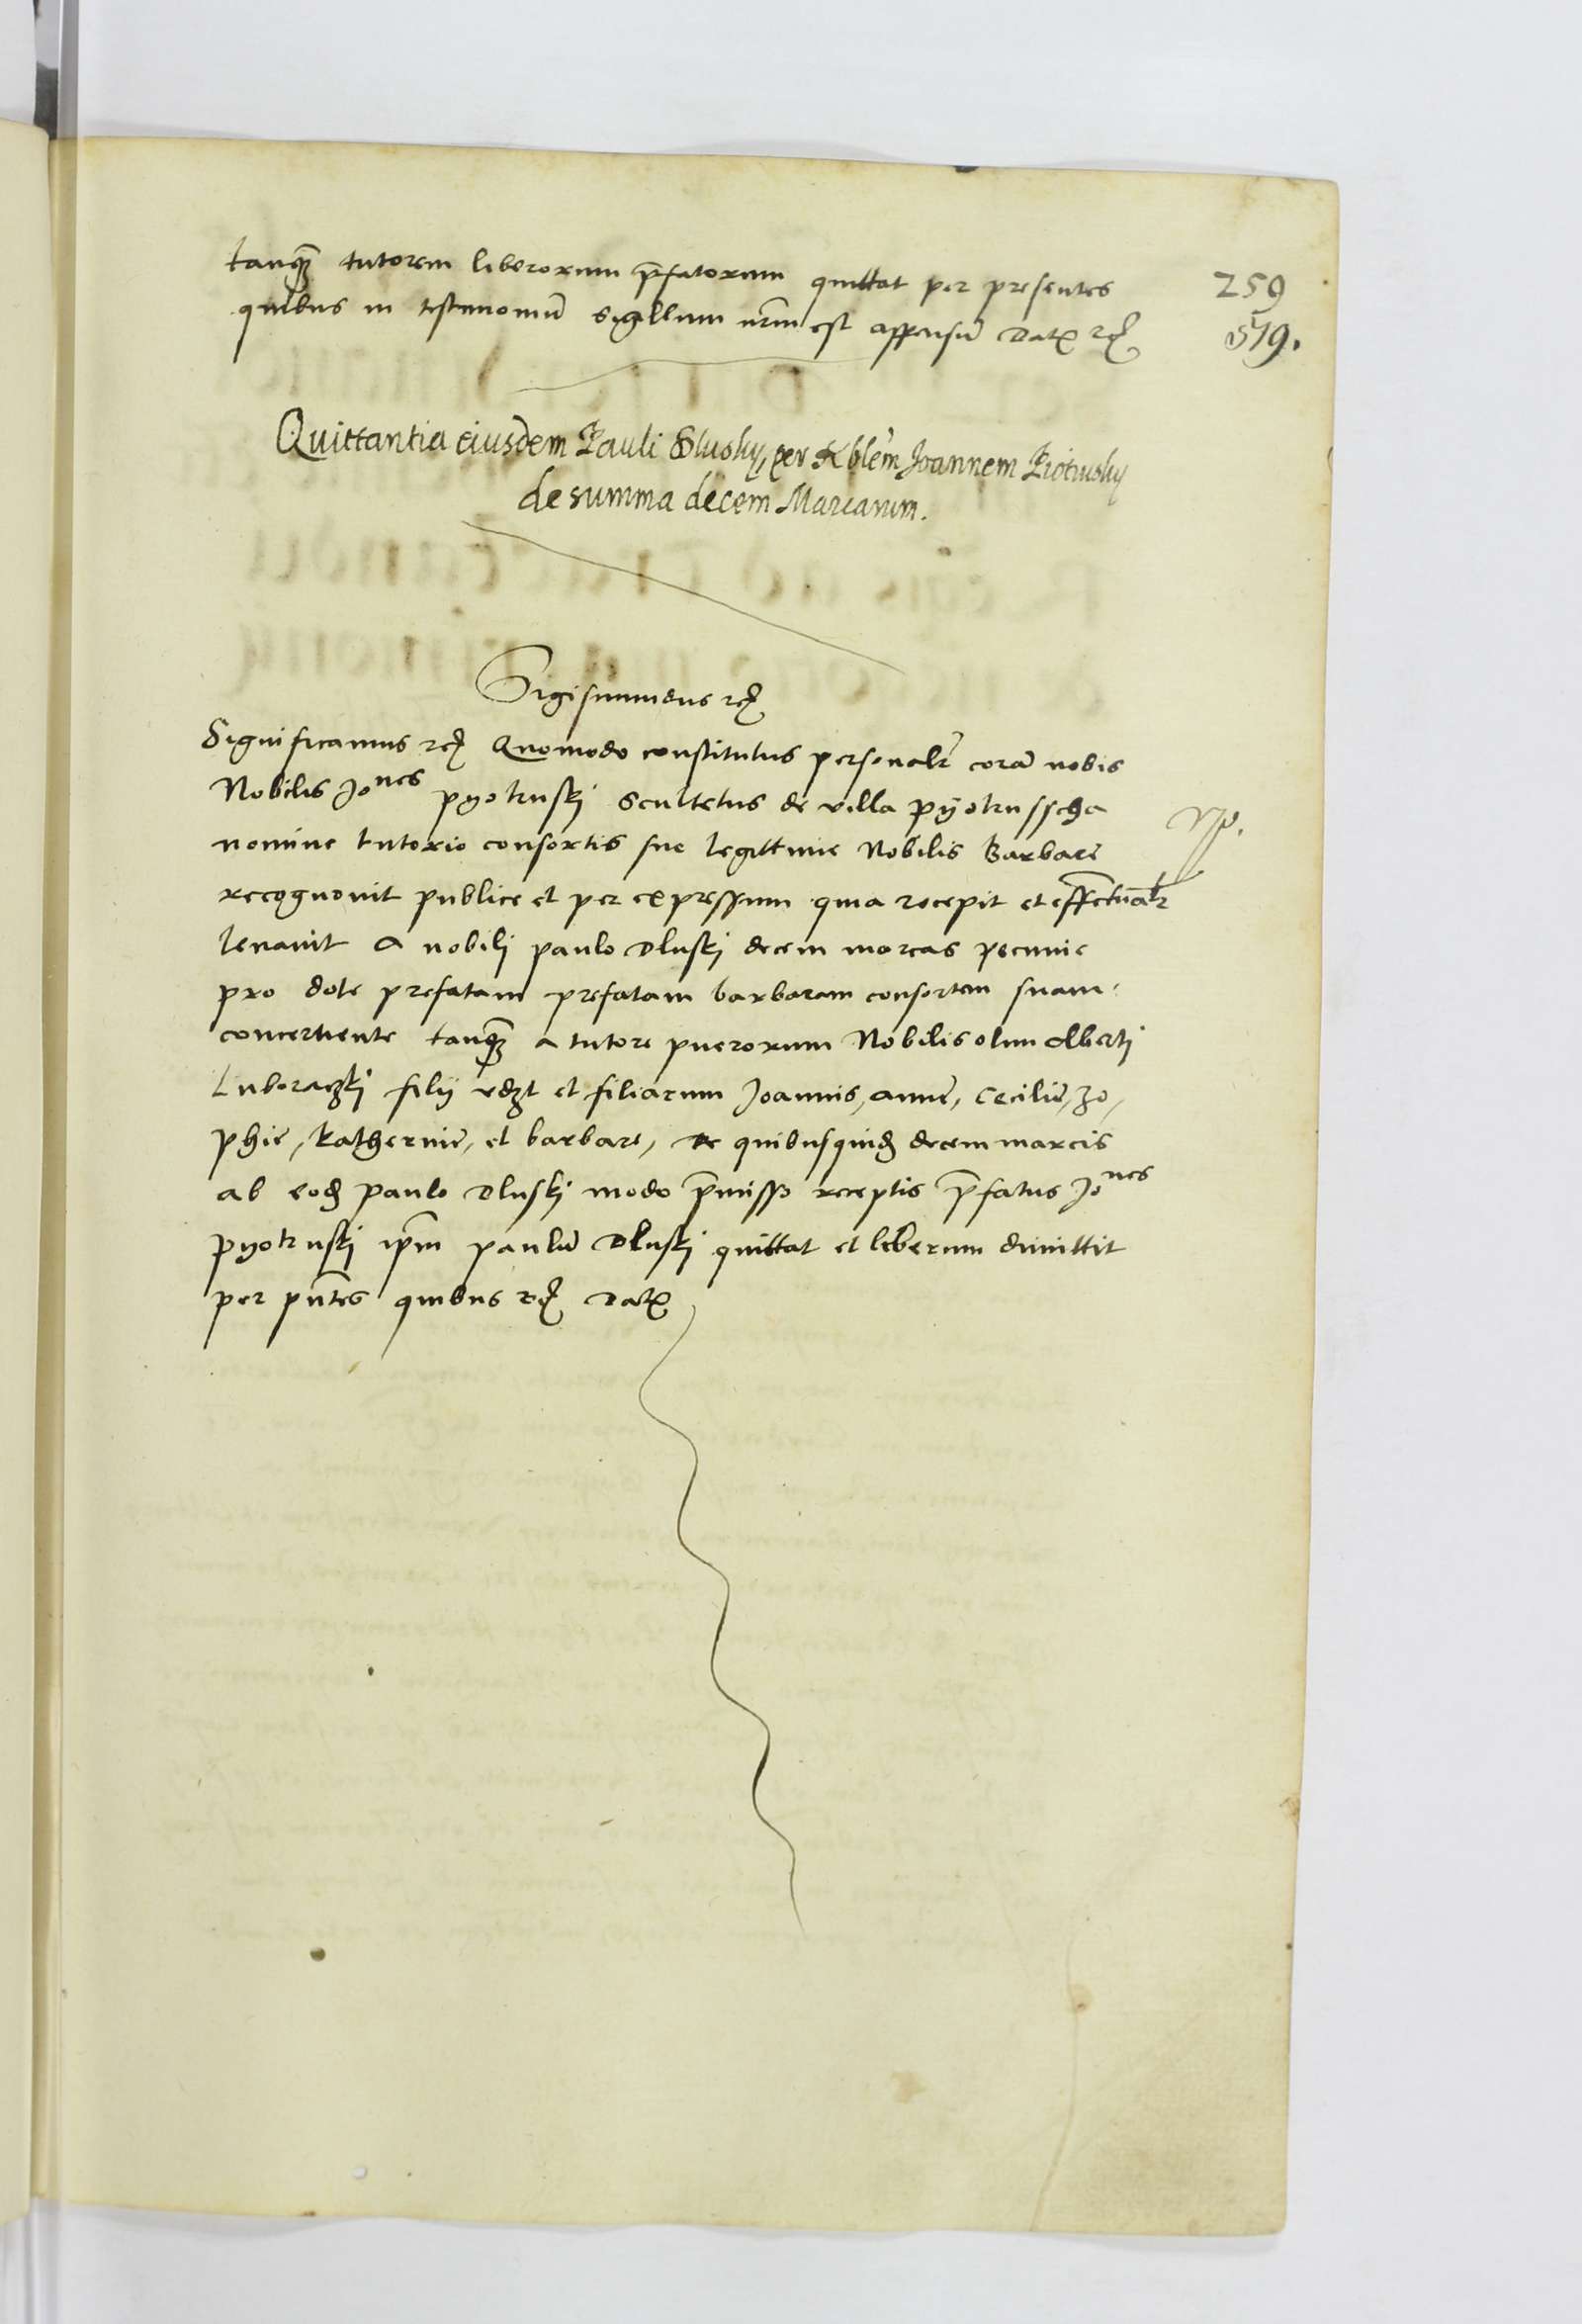 tanq̃ tutorem liberorum p̃fatorum quittat per presentes
quibus in testimoniũ sigillum nr̃m est appensũ Datꝭ ꝛcꝭ
259
519.
Quittantia eiusdem Pauli Dlusky, per Nblem̃ Joannem Piotrusky
de summa decem Marcarum.
Sigismundus ꝛcꝭ
Significamus ꝛcꝭ Quomodo constitutus personalr̃ corã nobis
Nobilis Jones pyotruski scultetus de villa pÿotrusscha
nomine tutorio consortis sue legittime Nobilis Barbare
recognovit publice et per expressum quia recepit et effectualr̃
levavit a nobilj paulo Dluskj decem marcas pecunie
pro dote prefatam prefatam barbaram consortem suam
concernente tanq̃ a tutore puerorum Nobilis olim Alberti
Luboraczki filij vdzt et filiarum Joannis, anne, Cecilie, Zo,
phie, katherine, et barbare, de quibusquidẽ decem marcis
ab eodẽ paulo Dluskj modo p̃misso receptis p̃fatus Jones
pyotruskj ip̃m paulũ Dluskj quittat et liberum dimittit
per pñtes quibus ꝛcꝭ Datꝭ